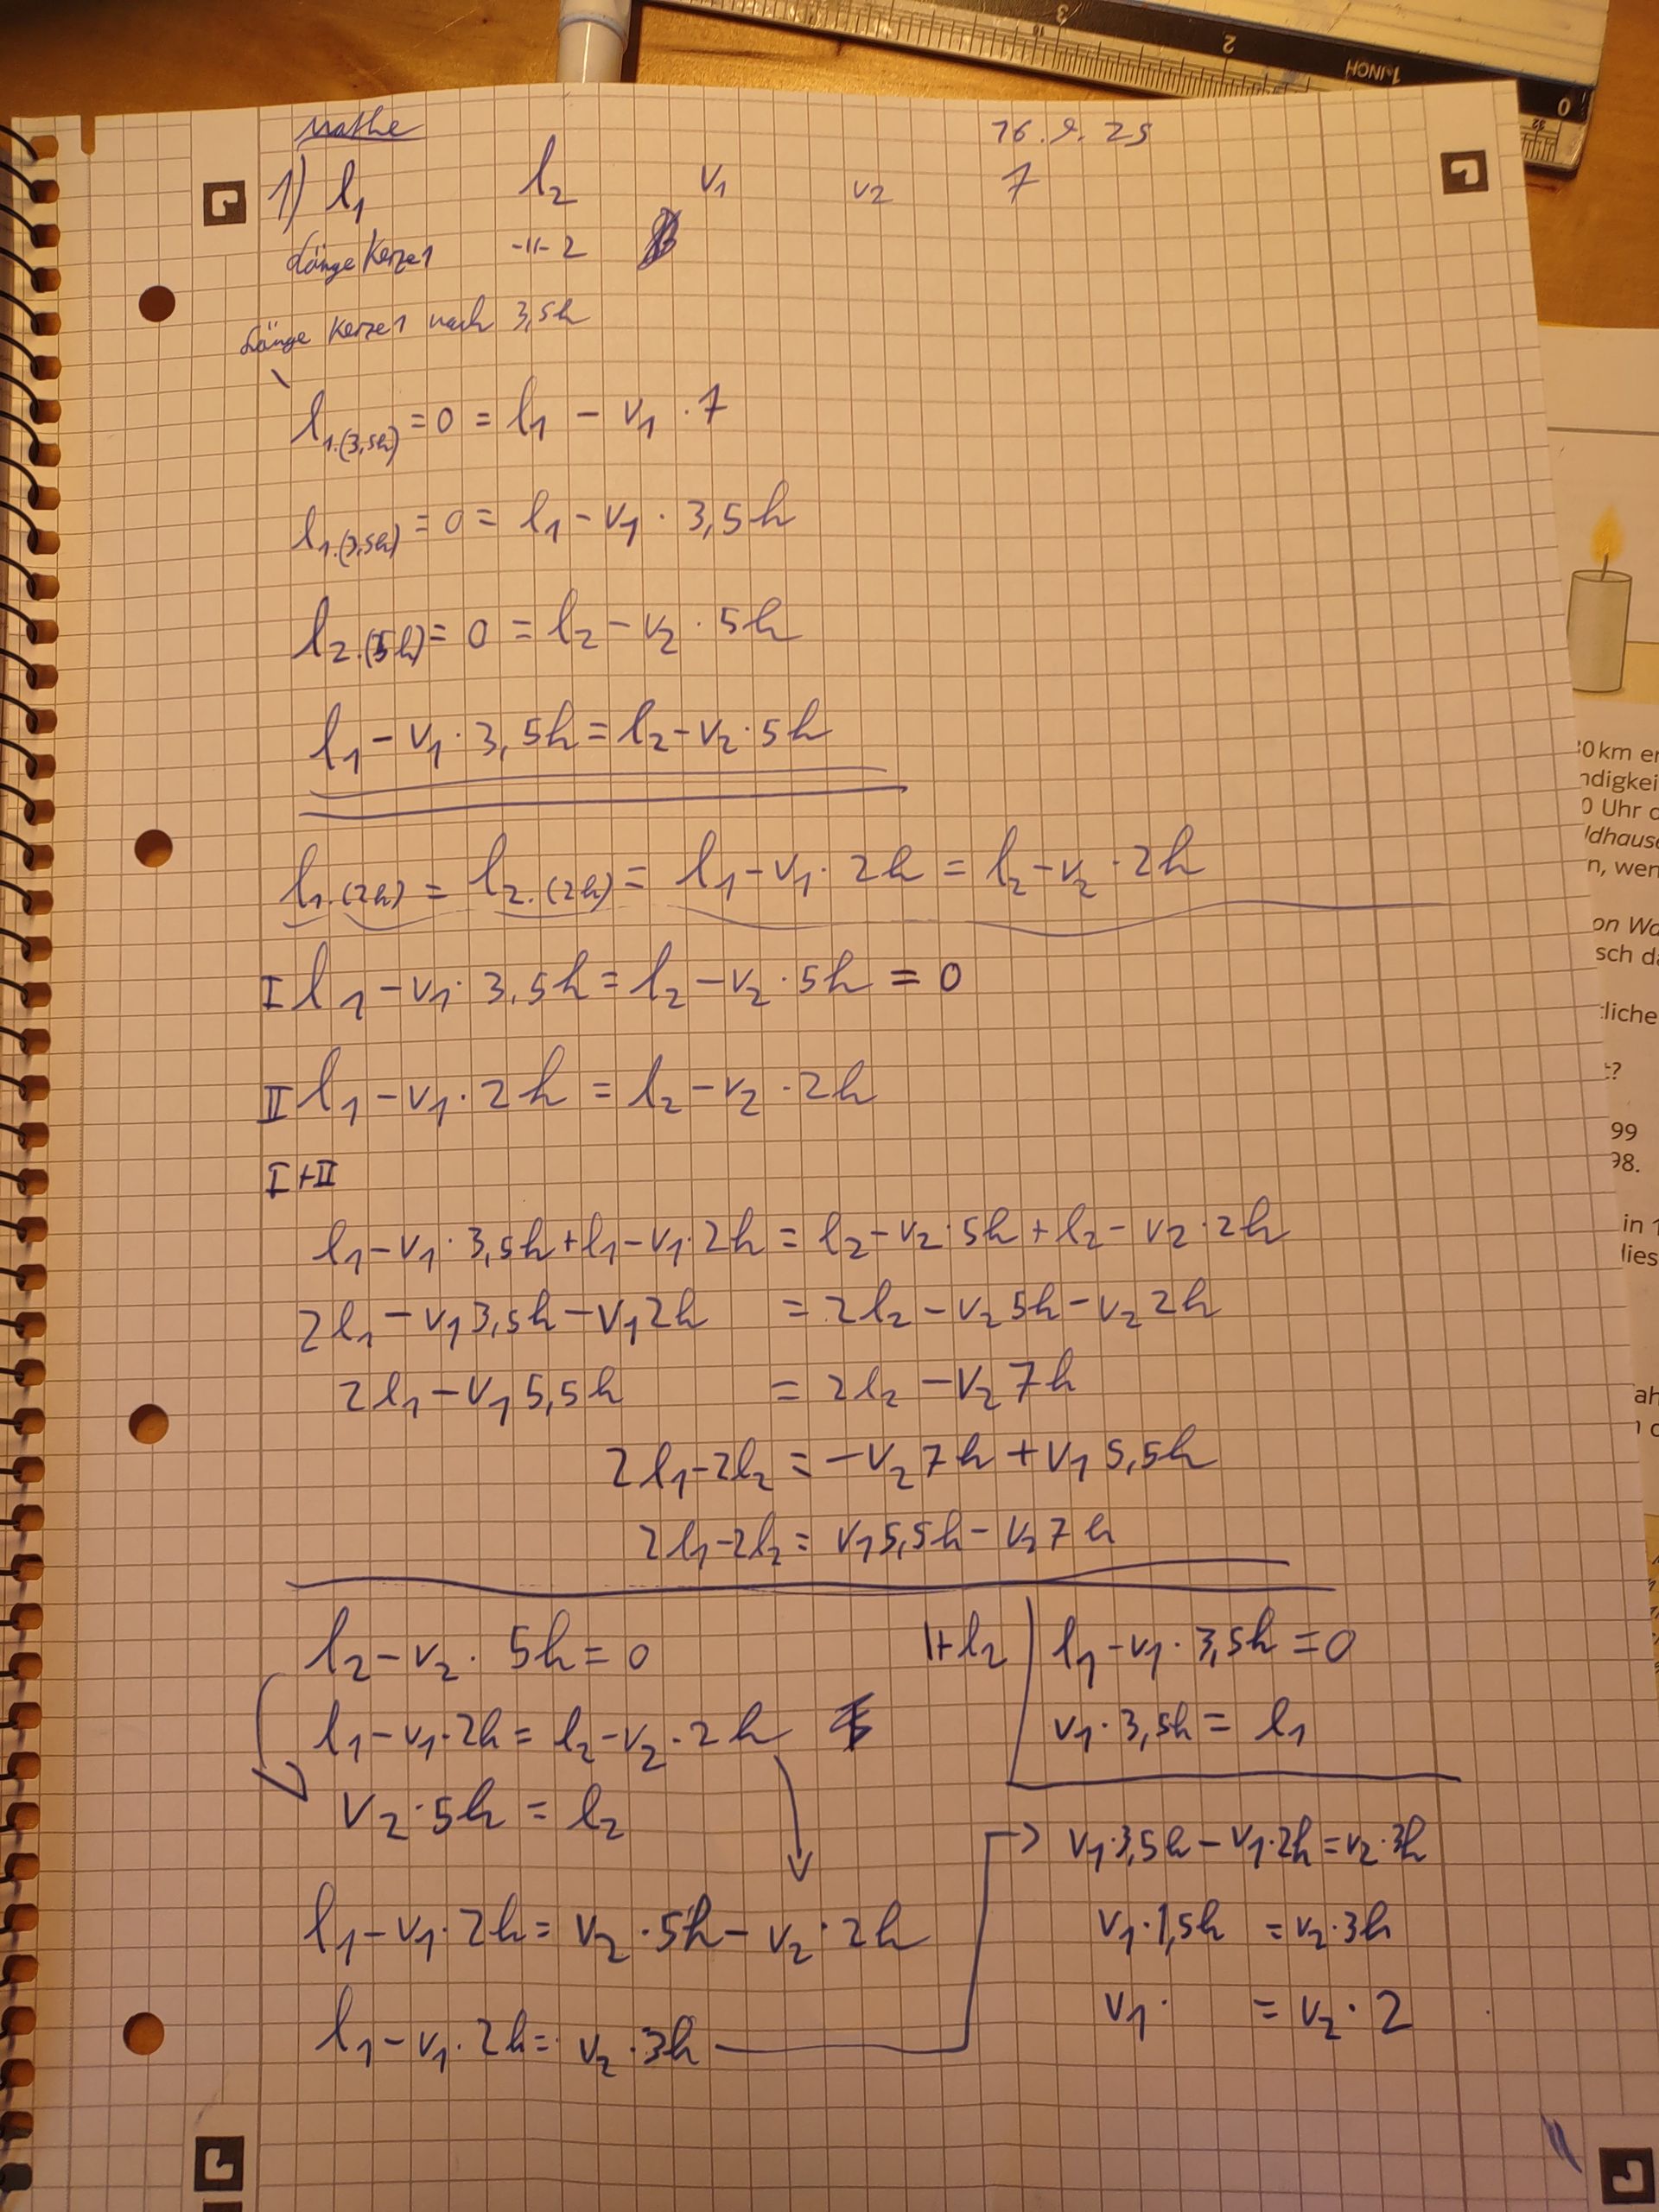 Mathe 16.9.25
1) l₁ l₂ v₁ v₂ 7
Länge Kerze 1 -"- 2
Länge Kerze 1 nach 3,5h
l₁.(3,5h) = 0 = l₁ - v₁ · 7
l₁.(3,5h) = 0 = l₁ - v₁ · 3,5h
l₂.(5h) = 0 = l₂ - v₂ · 5h
l₁ - v₁ · 3,5h = l₂ - v₂ · 5h
l₁.(2h) = l₂.(2h) = l₁ - v₁ · 2h = l₂ - v₂ · 2h
I l₁ - v₁ · 3,5h = l₂ - v₂ · 5h = 0
II l₁ - v₁ · 2h = l₂ - v₂ · 2h
I + II
l₁ - v₁ · 3,5h + l₁ - v₁ · 2h = l₂ - v₂ · 5h + l₂ - v₂ · 2h
2l₁ - v₁ 3,5h - v₁ 2h = 2l₂ - v₂ 5h - v₂ 2h
2l₁ - v₁ 5,5h = 2l₂ - v₂ 7h
2l₁ - 2l₂ = -v₂ 7h + v₁ 5,5h
2l₁ - 2l₂ = v₁ 5,5h - v₂ 7h
l₂ - v₂ · 5h = 0 |+l₂
l₁ - v₁ · 2h = l₂ - v₂ · 2h
v₂ · 5h = l₂
l₁ - v₁ · 2h = v₂ · 5h - v₂ · 2h
l₁ - v₁ · 2h = v₂ · 3h
l₁ - v₁ · 3,5h = 0
v₁ · 3,5h = l₁
v₁ · 3,5h - v₁ · 2h = v₂ · 3h
v₁ · 1,5h = v₂ · 3h
v₁ · = v₂ · 2
1 INCH
0
2
3
16
32
0 Uhr
on
in
99
98.